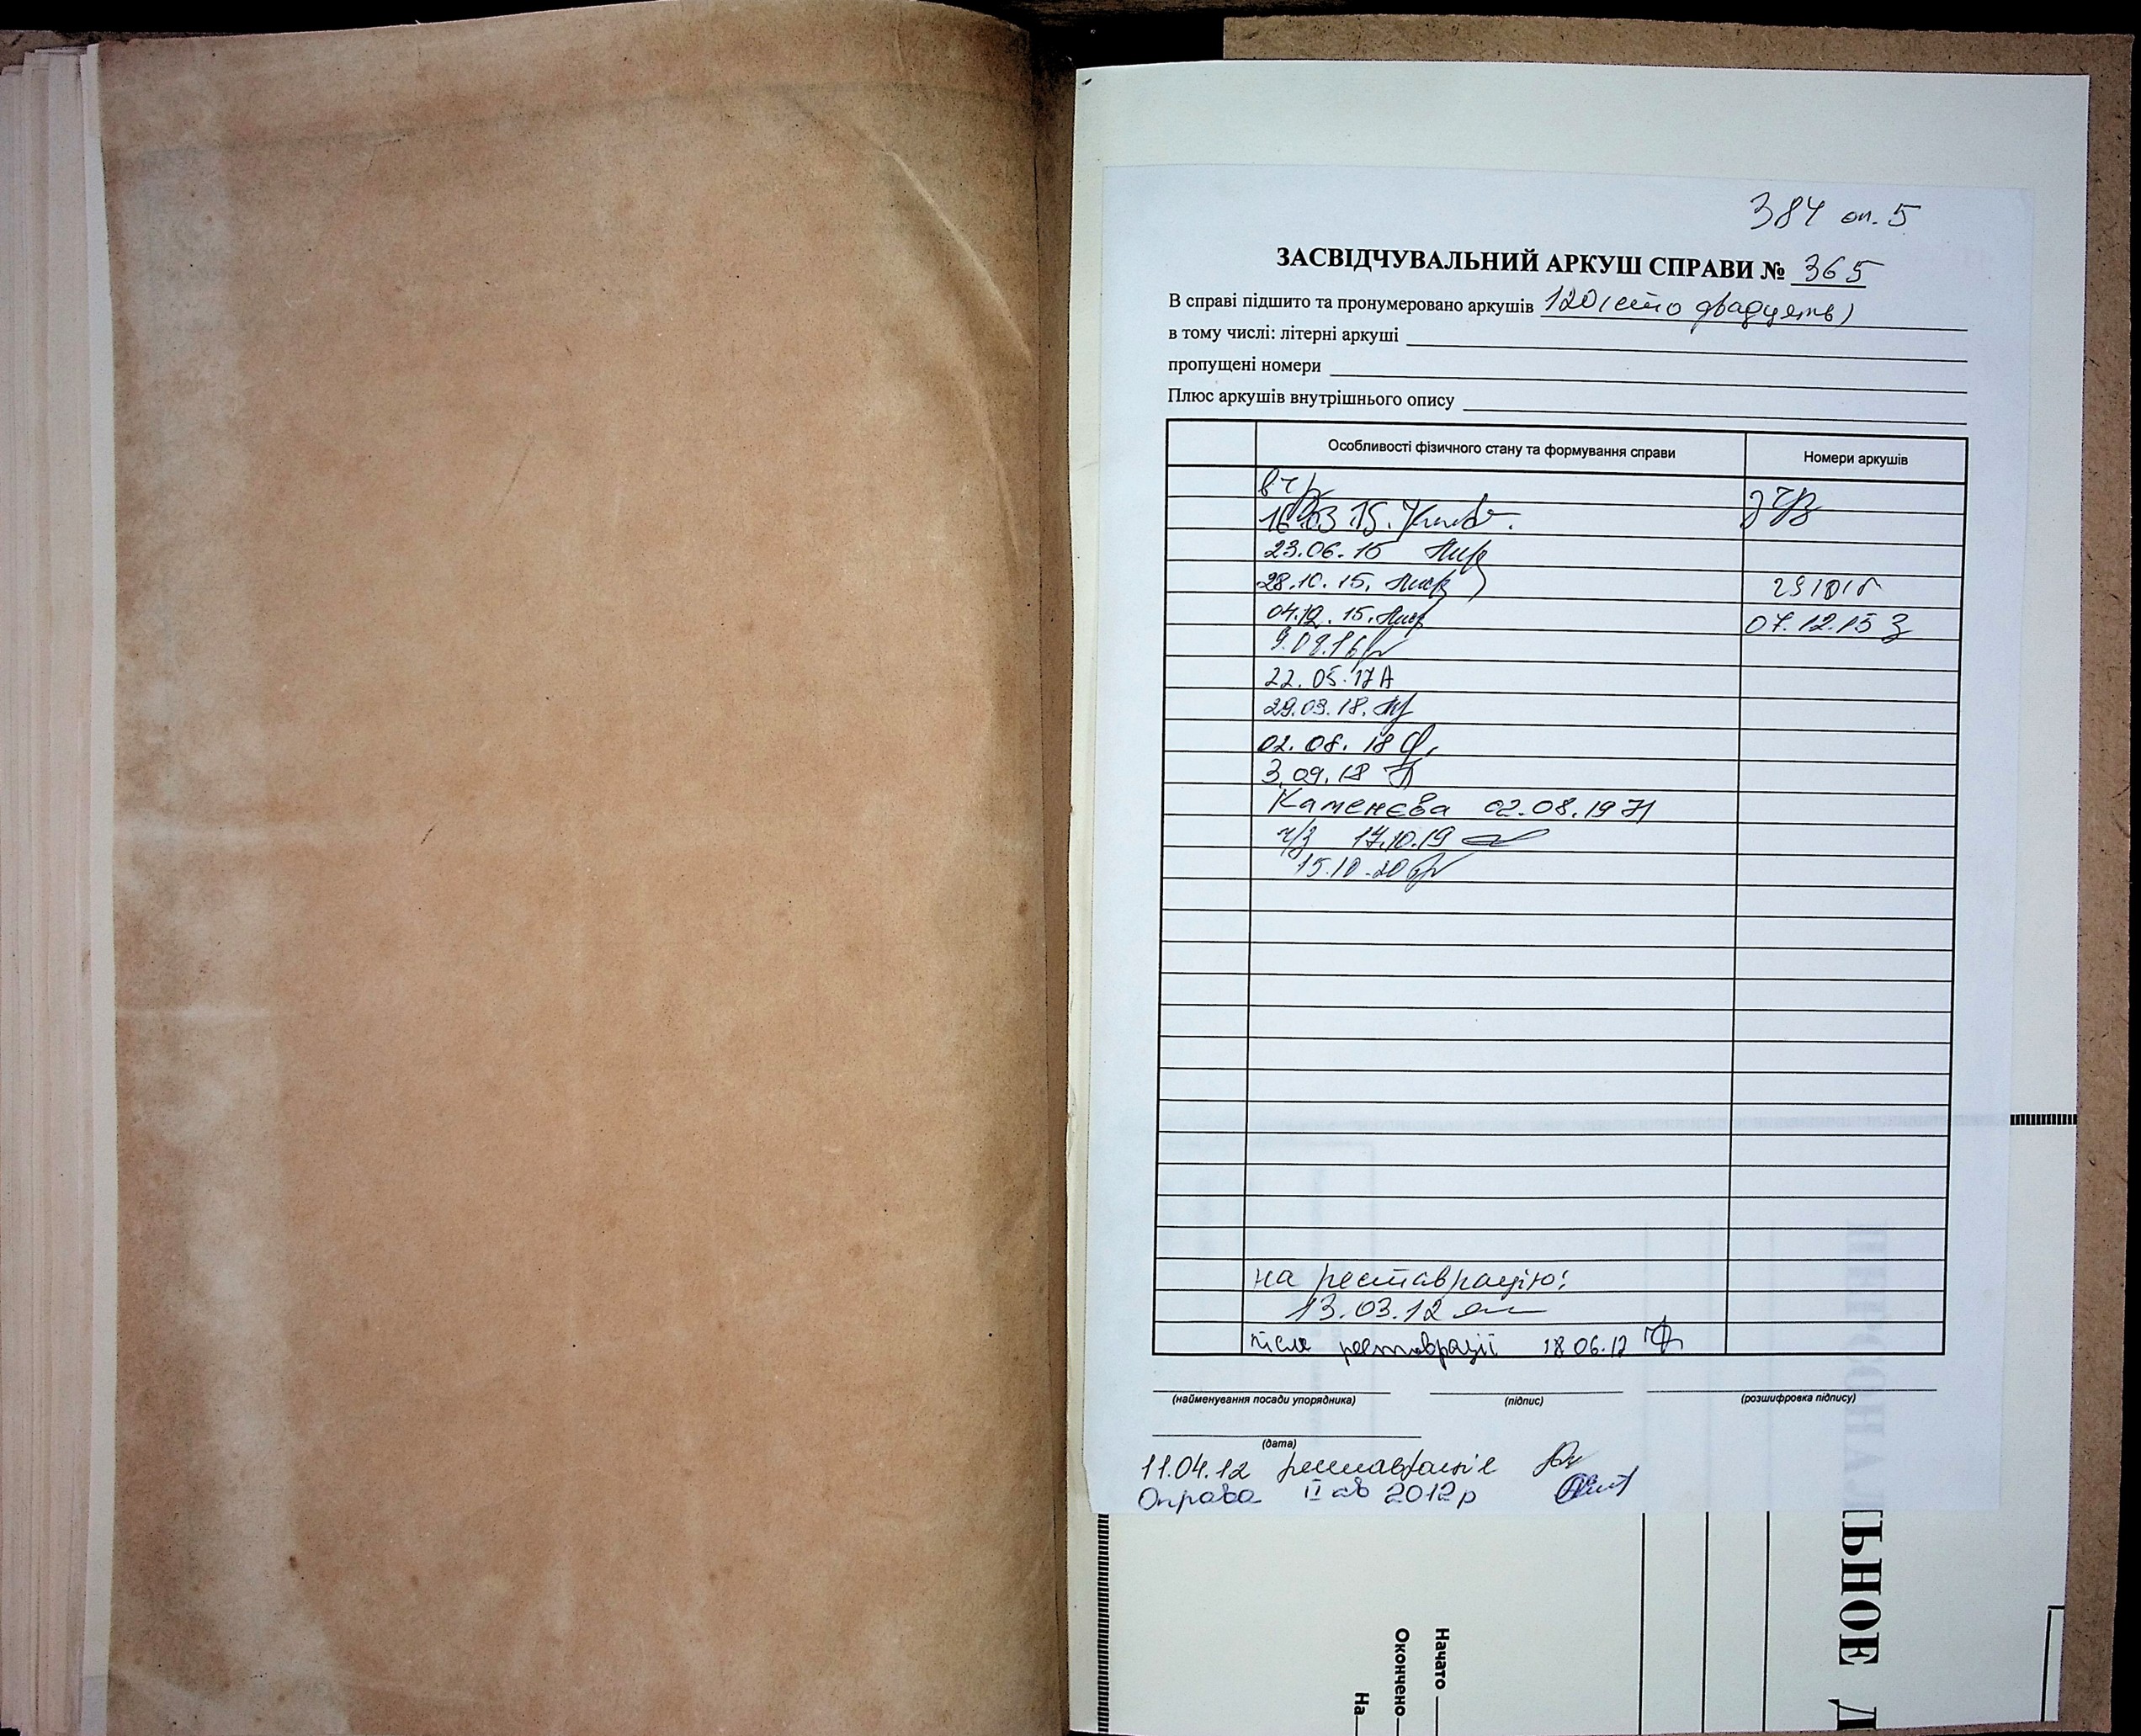 384 оп. 5
ЗАСВІДЧУВАЛЬНИЙ АРКУШ СПРАВИ № 365
В справі підшито та пронумеровано аркушів 120 (сто двадцять)
в тому числі: літерні аркуші
пропущені номери
Плюс аркушів внутрішнього опису
Особливості фізичного стану та формування справи Номери аркушів
16.03 15.
23.06.15
28.10.15.
04.12.15. 07.12.15 З
9.08.16
22.05.17 А
29.03.18.
02.08.18
3.09.18
Каменєва 02.08.19
ч/з 17.10.19
15.10.20
на реставрацію:
13.03.12
після реставрації 18.06.12
(найменування посади упорядника) (підпис) (розшифровка підпису)
(дата)
11.04.12 реставрація
Оправа ІІ кв 2012 р
ЬНОЕ Д
Начато
Окончено
На